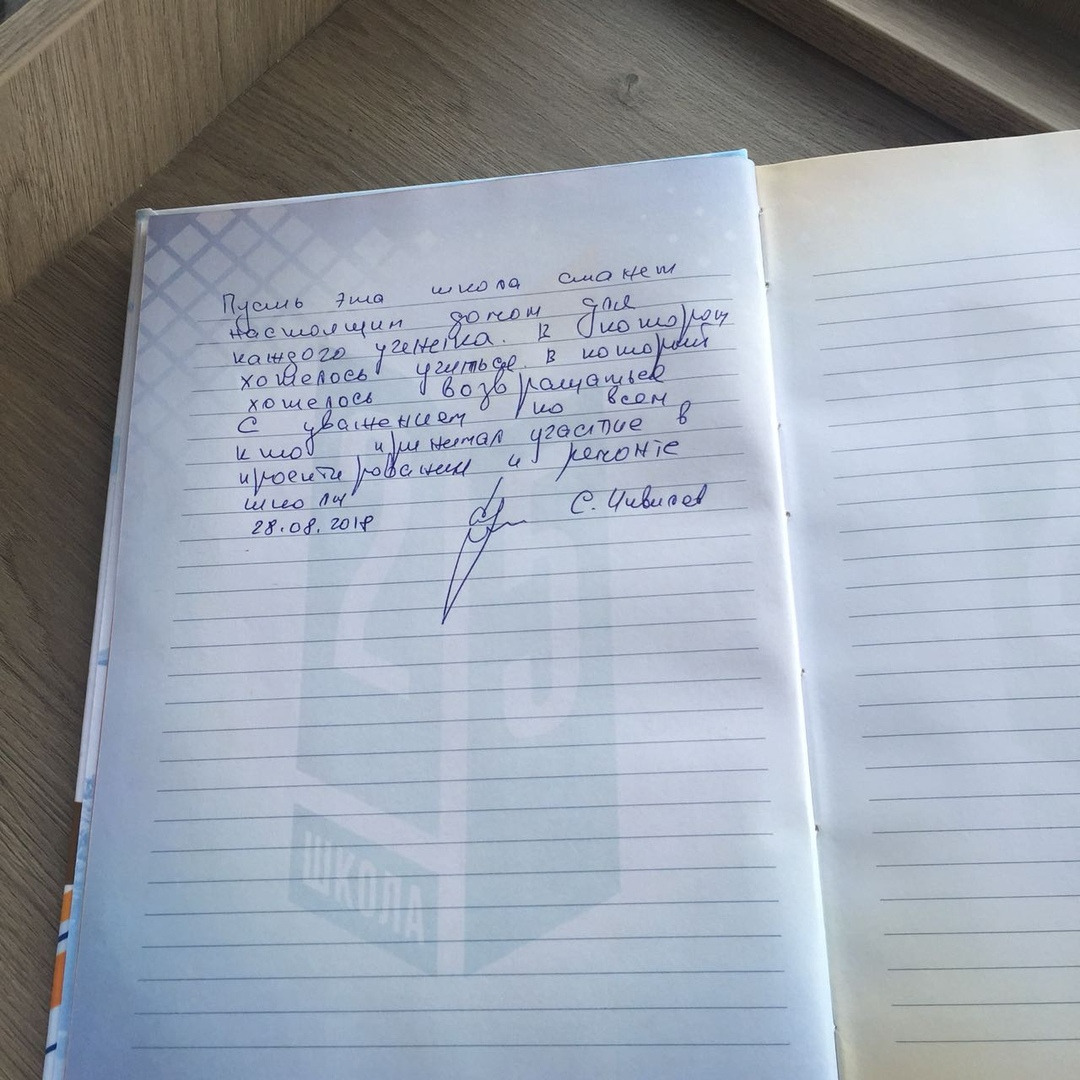 Пусть эта школа станет
настоящим домом для
каждого ученика. В которой
хотелось учиться. В которой
хотелось возвращаться
С уважением ко всем
кто принимал участие в
проектировании и ремонте
школы
С. Цивилев
28.08.2018
45
ШКОЛА